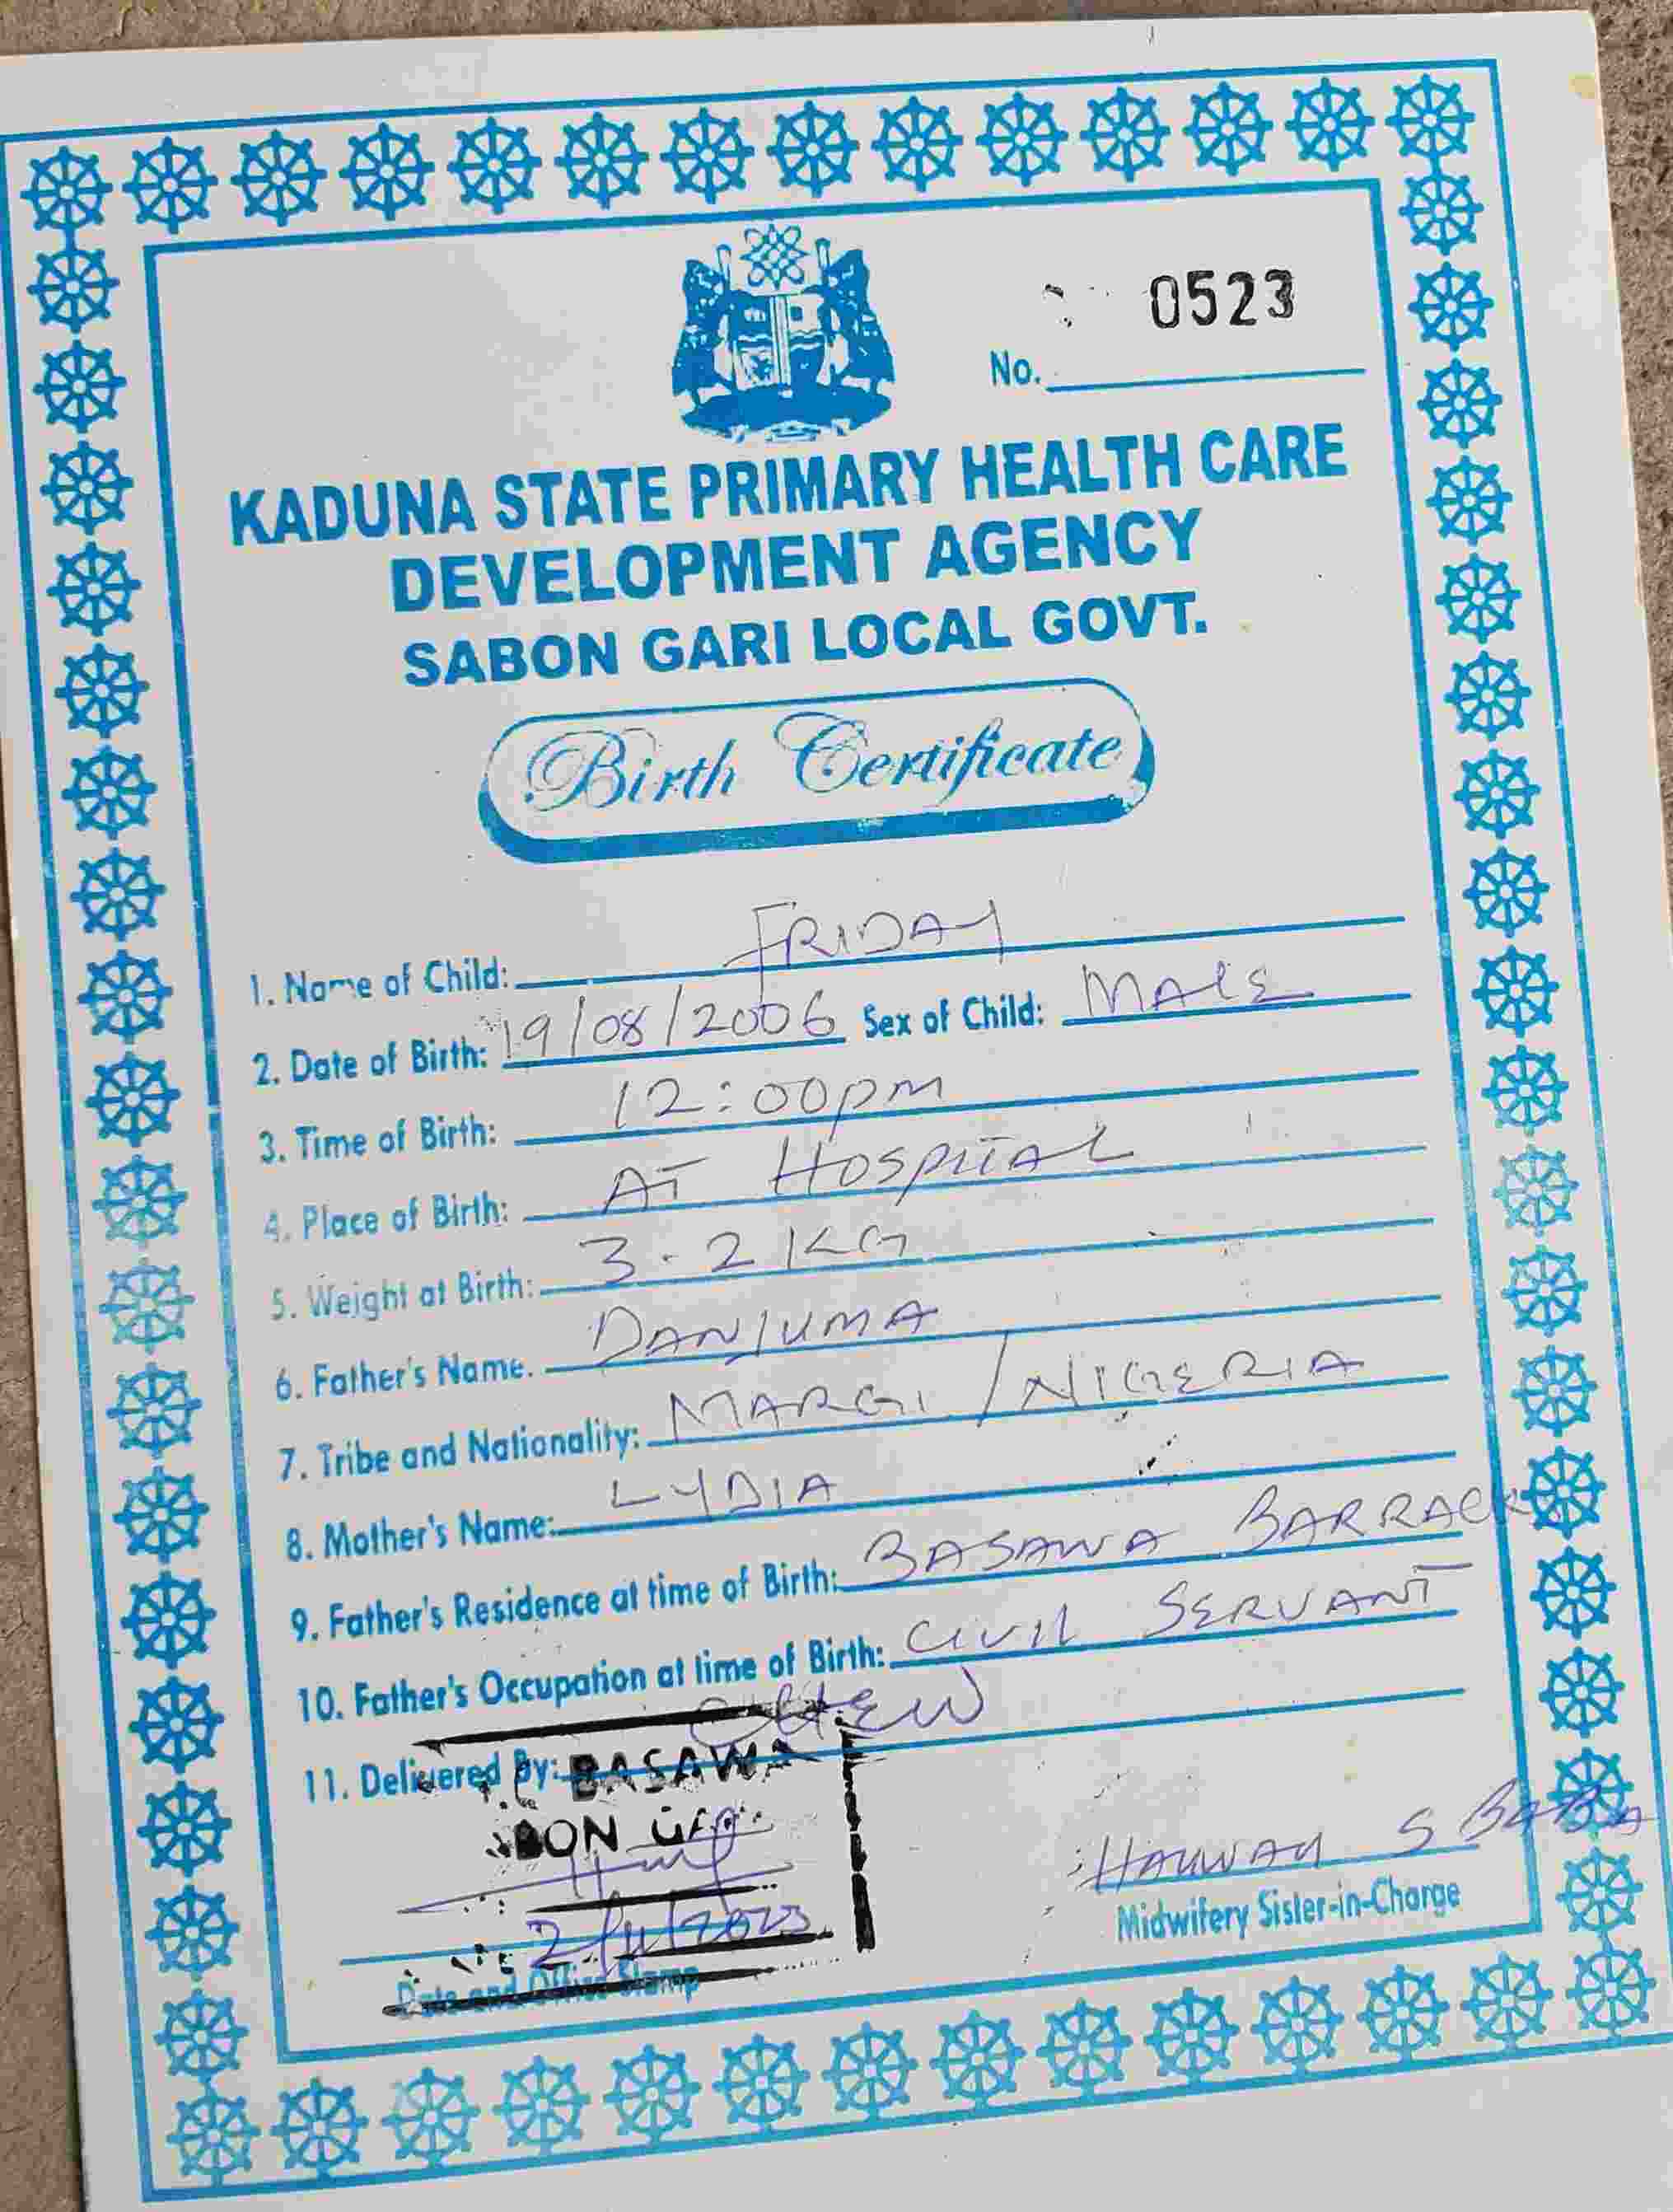 0523
No.
KADUNA STATE PRIMARY HEALTH CARE
DEVELOPMENT AGENCY
SABON GARI LOCAL GOVT.
Birth Certificate
1. Name of Child: FRIDAY
2. Date of Birth: 19/08/2006 Sex of Child: MALE
3. Time of Birth: 12:00pm
4. Place of Birth: AT HOSPITAL
5. Weight at Birth: 3.2KG
6. Father's Name. DANJUMA
7. Tribe and Nationality: MARGI / NIGERIA
8. Mother's Name: LYDIA
9. Father's Residence at time of Birth: BASAWA BARRACK
10. Father's Occupation at time of Birth: CIVIL SERVANT
11. Delivered By: CHEW
BASAWA
BON GA
HAUWAU S BABA
Midwifery Sister-in-Charge
Date and Office Stamp